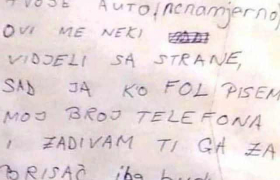 TVOJE AUTO (nenamjerno)
OVI ME NEKI
VIDJELI SA STRANE,
SAD JA KO FOL PIŠEM
MOJ BROJ TELEFONA
I ZADIVAM TI GA ZA
BRISAČ